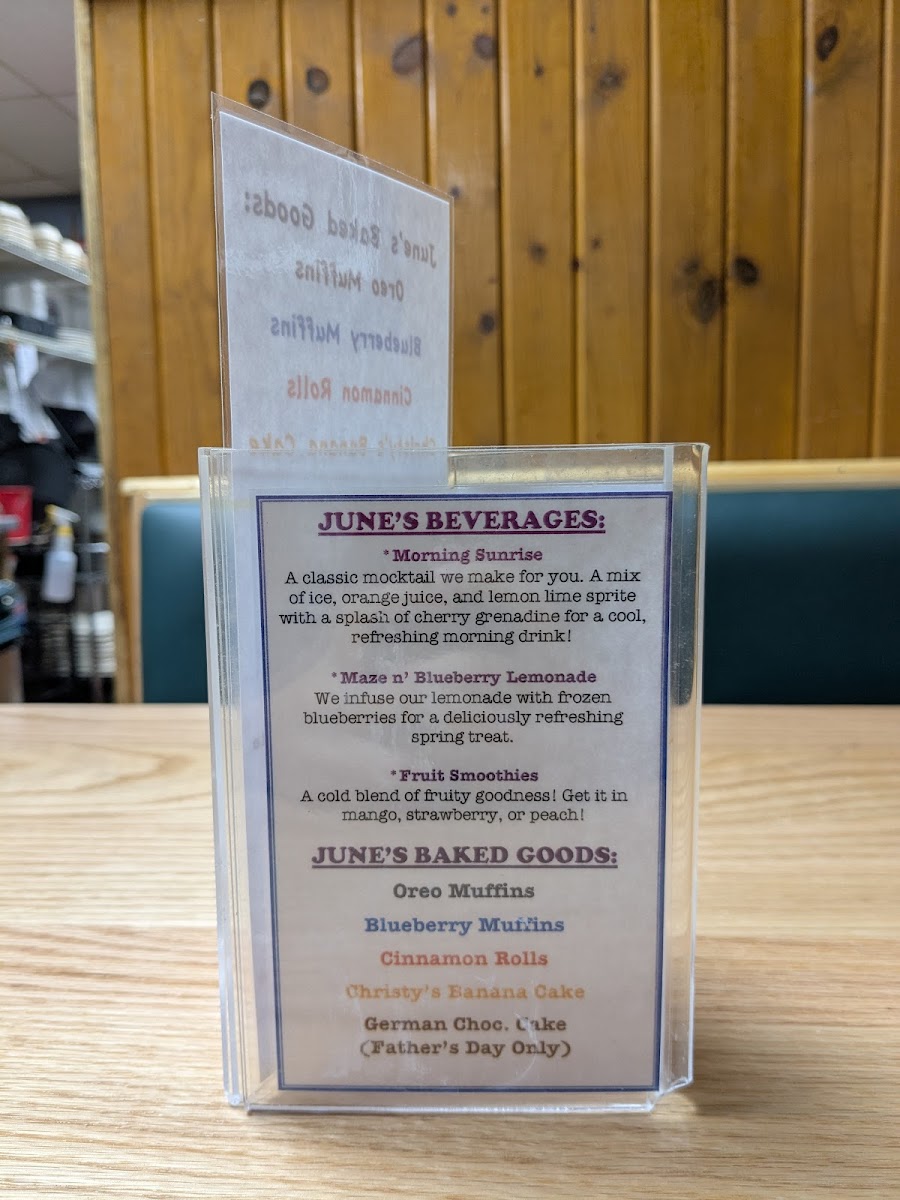 June's Baked Goods:
Oreo Muffins
Blueberry Muffins
Cinnamon Rolls
Christy's Banana Cake
JUNE'S BEVERAGES:
*Morning Sunrise
A classic mocktail we make for you. A mix
of ice, orange juice, and lemon lime sprite
with a splash of cherry grenadine for a cool,
refreshing morning drink!
*Maze n' Blueberry Lemonade
We infuse our lemonade with frozen
blueberries for a deliciously refreshing
spring treat.
*Fruit Smoothies
A cold blend of fruity goodness! Get it in
mango, strawberry, or peach!
JUNE'S BAKED GOODS:
Oreo Muffins
Blueberry Muffins
Cinnamon Rolls
Christy's Banana Cake
German Choc. Cake
(Father's Day Only)